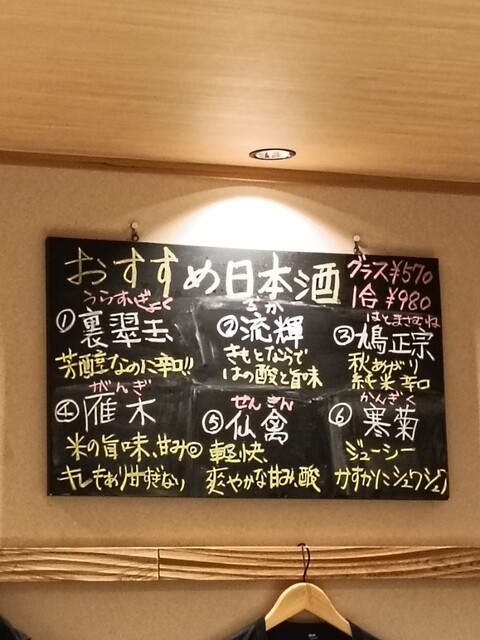 おすすめ日本酒
グラス¥570
1合 ¥980
うらすいぎょく
①裏翠玉
芳醇なのに辛口!!
るか
②流輝
きもとならで
はの酸と旨味
はとまさむね
③鳩正宗
秋あがり
純米辛口
がんぎ
④雁木
米の旨味、甘み◎
キレもあり甘すぎない
せんきん
⑤仙禽
軽快、
爽やかな甘み、酸
かんぎく
⑥寒菊
ジューシー
かすかにシュワシュワ